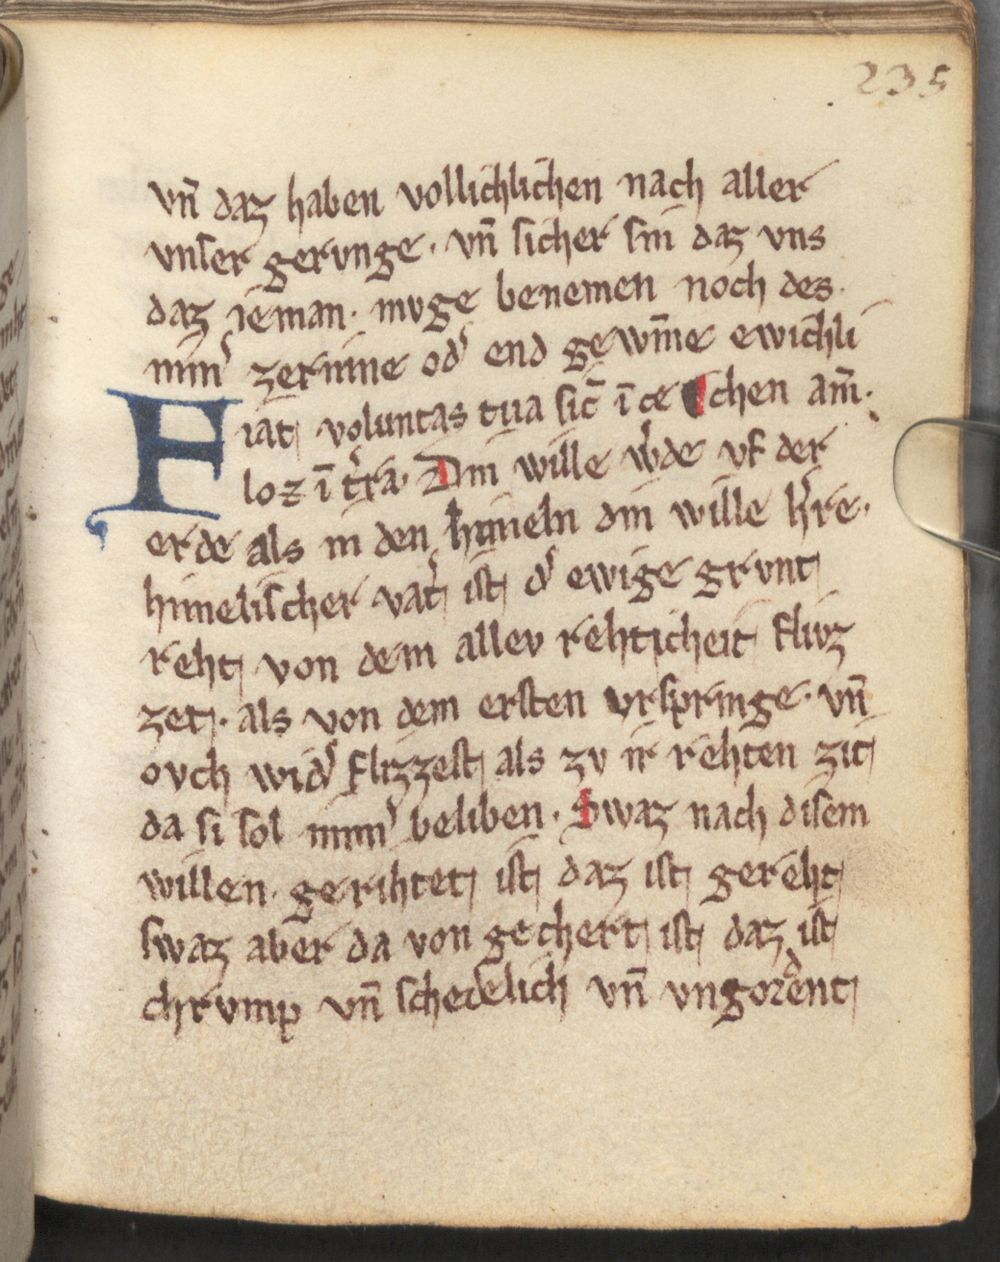 235
vn̄ daz haben vollichlichen nach aller
vnser gervnge · vn̄ sicher sin daz vns
daz ieman · mvge benemen noch des ·
zerinne od᾽ end gewin̄e ewichli
Fiat voluntas tua sic̄ ī ce ¶ chen am̄ ·
lo z ī t᾽ra · Din wille w᾽de vf der
erde als in den himeln din wille h᾽re ·
himelischer vat᾽ ist d᾽ ewige grvnt
reht von dem allev rehticheit flivz
zet · als von dem ersten vrspringe · vn̄
ovch wid᾽ flizzest als zv ir rehten zit
da si sol beliben · Swaz nach disem
willen · gerihtet ist daz ist gereht
swaz aber da von gechert ist daz ist
chrvmp vn̄ schedelich vn̄ vngordent